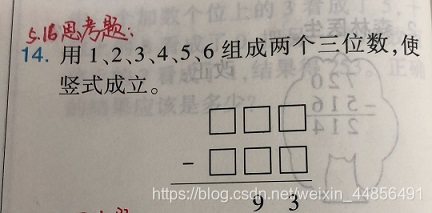 5.16思考题:
14. 用1、2、3、4、5、6组成两个三位数,使
竖式成立。
□□□
- □□□
9 3
https://blog.csdn.net/weixin_44856491